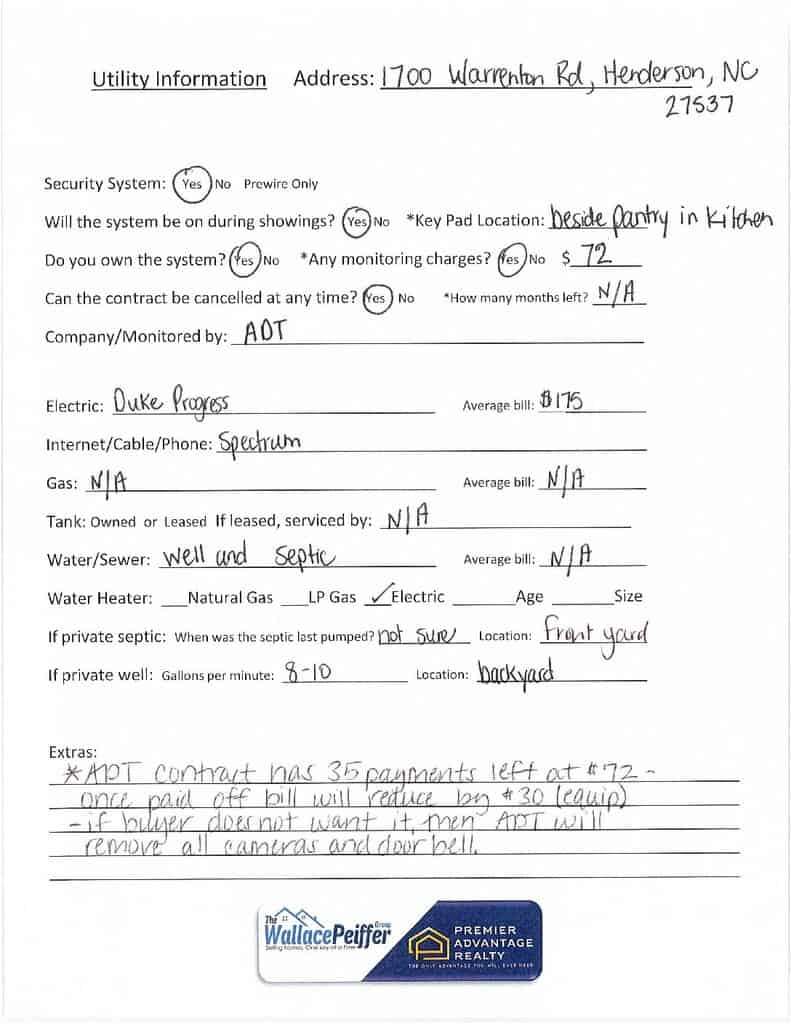 Utility Information Address: 1700 Warrenton Rd, Henderson, NC
27537
Security System: Yes No Prewire Only
Will the system be on during showings? Yes No *Key Pad Location: beside pantry in Kitchen
Do you own the system? Yes No *Any monitoring charges? Yes No $ 72
Can the contract be cancelled at any time? Yes No *How many months left? N/A
Company/Monitored by: ADT
Electric: Duke Progress Average bill: $175
Internet/Cable/Phone: Spectrum
Gas: N/A Average bill: N/A
Tank: Owned or Leased If leased, serviced by: N/A
Water/Sewer: well and septic Average bill: N/A
Water Heater: ___Natural Gas ___LP Gas ✓Electric ______Age ______Size
If private septic: When was the septic last pumped? not sure Location: front yard
If private well: Gallons per minute: 8-10 Location: backyard
Extras:
*ADT contract has 35 payments left at $72 -
once paid off bill will reduce by $30 (equip)
- if buyer does not want it, then ADT will
remove all cameras and doorbell.
The WallacePeiffer Group
Selling Homes, One Joy at a Time
PREMIER
ADVANTAGE
REALTY
THE ONLY ADVANTAGE YOU WILL EVER NEED